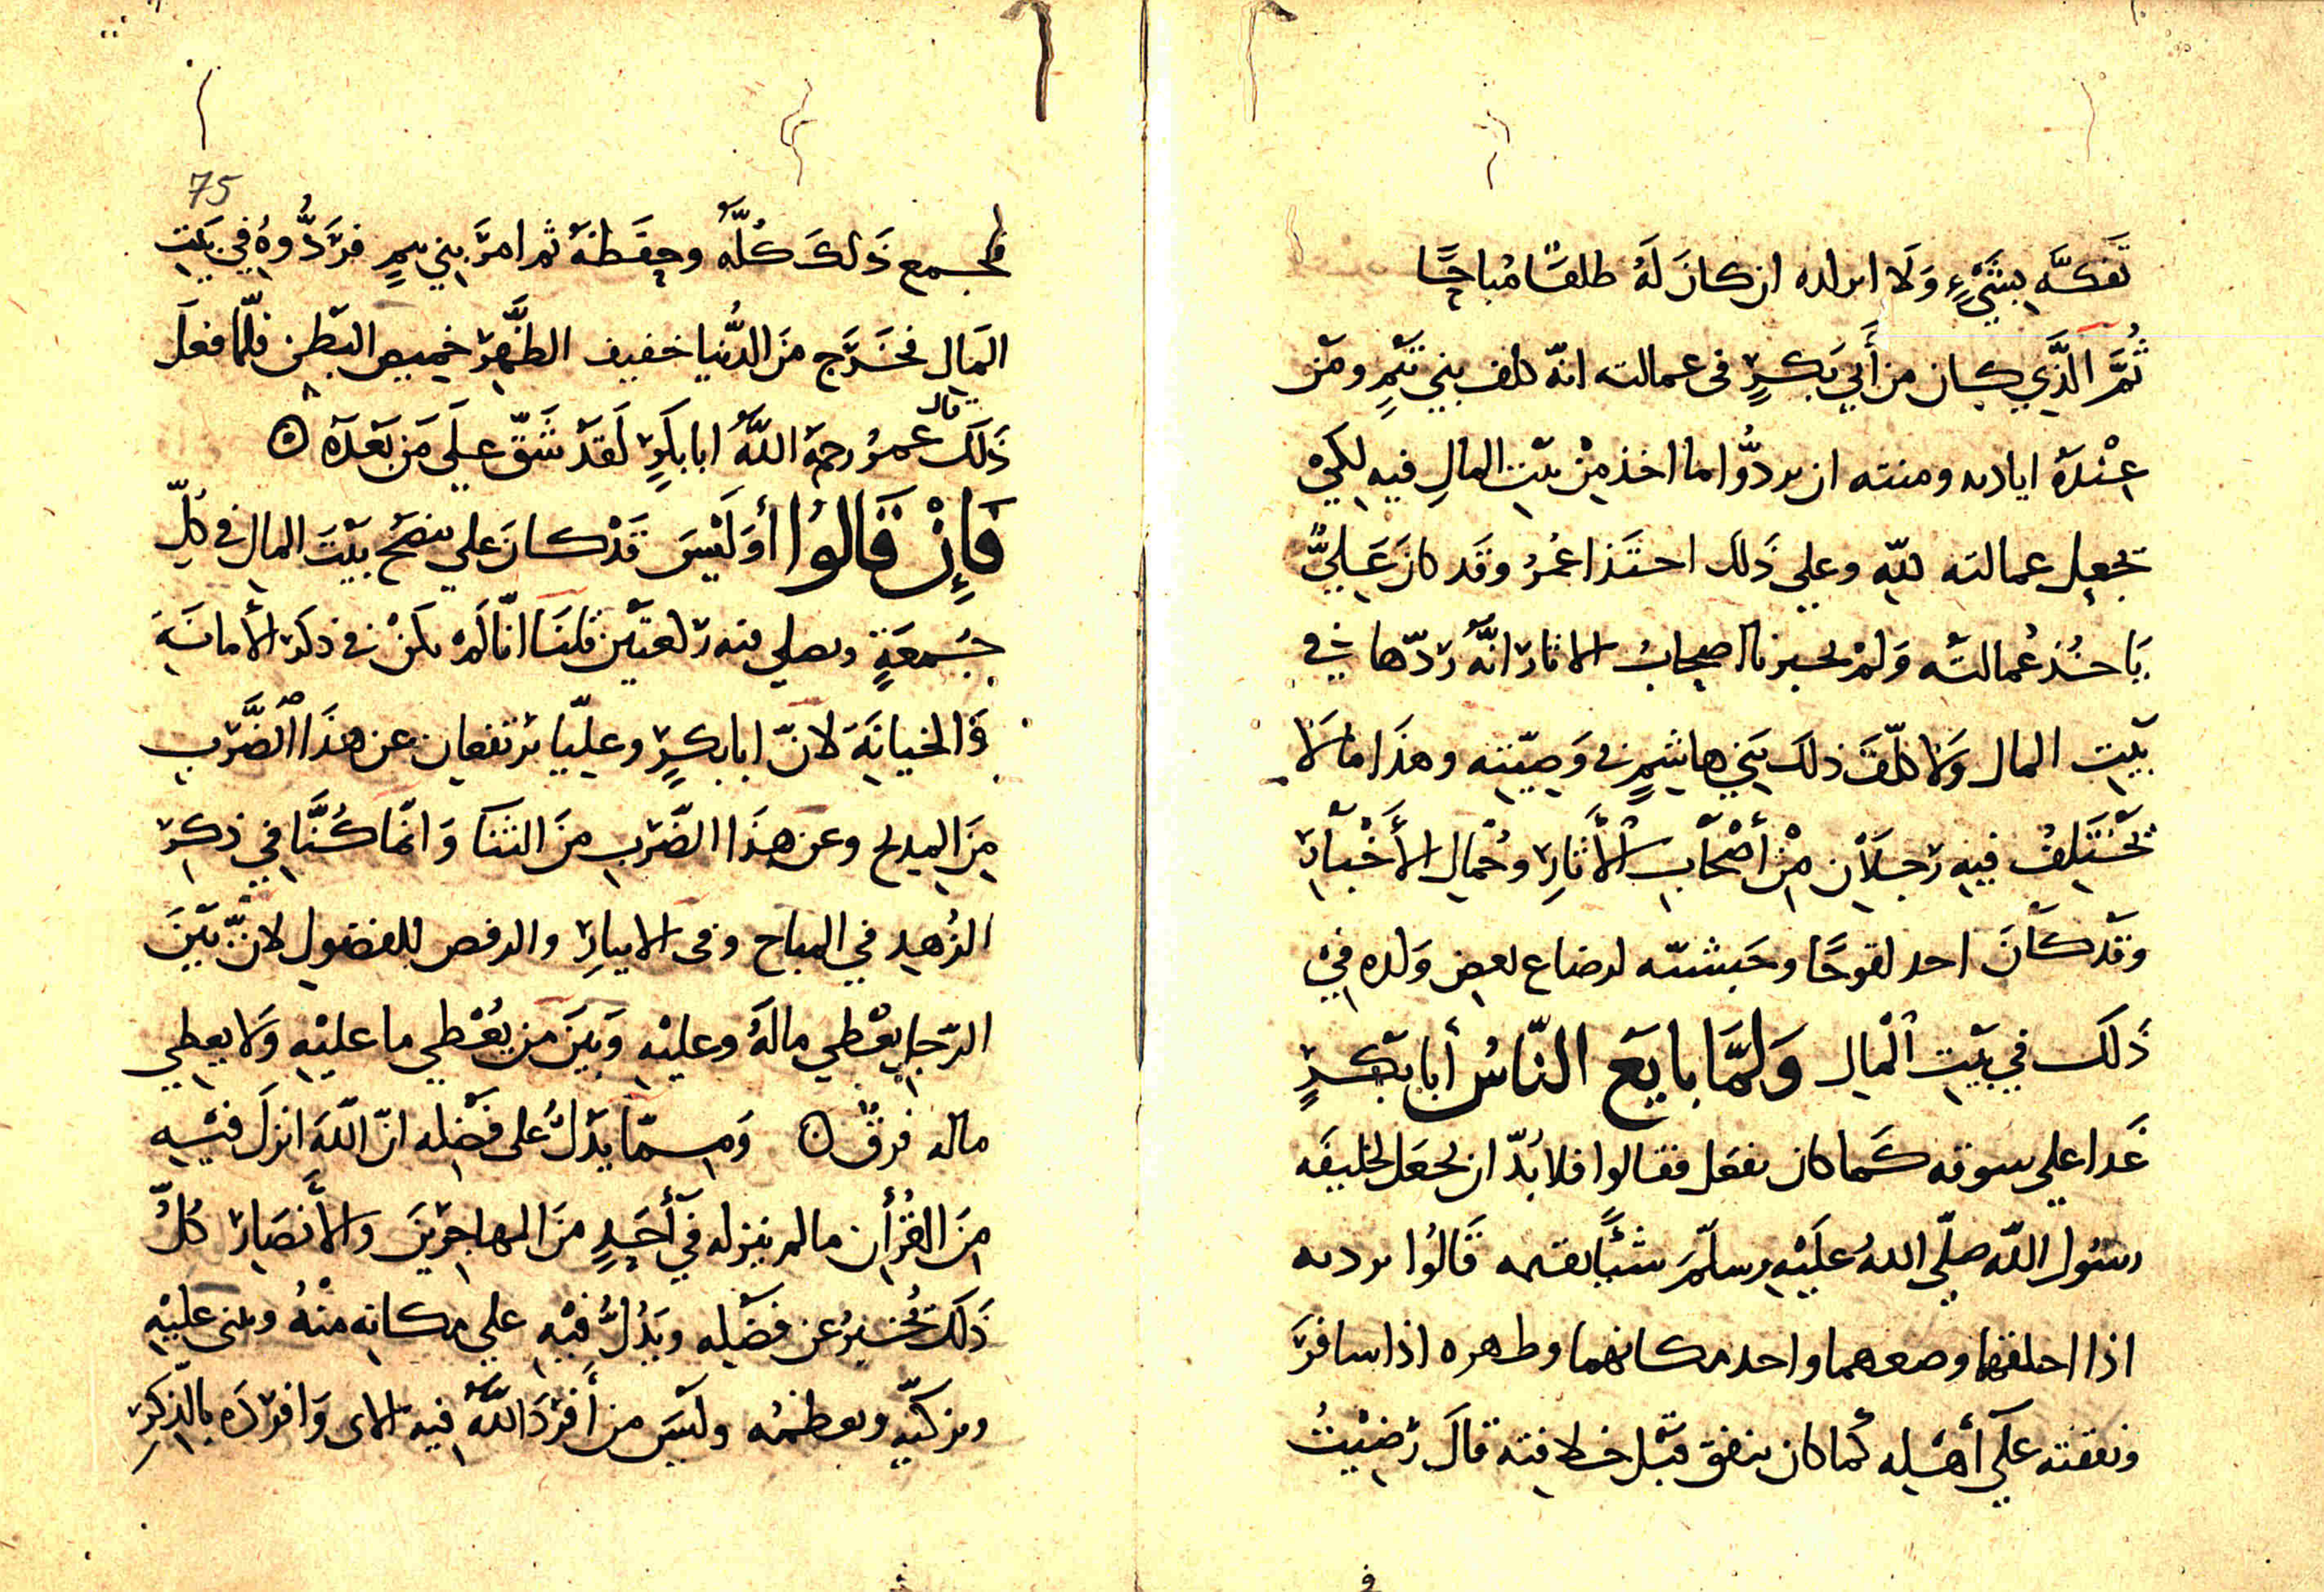 تفكّه بشيءٍ وَلَا ان كانَ لَهُ طلقًا مُباحًا
ثُمَّ الَّذِي كان من أَبي بَكرٍ في عمالته انّه كلف بني تَيْمٍ ومَن
عِنْدَهُ اياديه ومنته ان يردُّوا ما اخذ مِنْ بيْتِ المالِ فيهِ لِكَيْ
تجعل عمالته للهِ وعلى ذَلك احتذا عُمَرُ وَقَد كانَ عَلِيٌّ
يَاخُذ عُمالتَه وَلَمْ يخبرنا اصحابُ الاثار انَّهُ رَدّها في
بَيْتِ المال وَلا كلّفَ ذلكَ بَنِي هاشِمٍ في وَصِيّته وهذَا ما لَا
تَخْتَلِفُ فيهِ رَجلَانِ مِنْ أَصْحَابِ الْأَثارِ وحُمالِ الأَخْبارِ
وَقَدْ كَانَ احد لقوحًا وحَبشيّه لرضاع بعض وَلده فِيْ
ذَلَك في بَيْتِ الْمالِ وَلمَّا بايَع النّاسُ أَبا بَكرٍ
غَدا علي سوقه كَما كان يفعَل فقالوا فلا بُدّ ان نجعَل لخليفَه
رسُول اللّه صلّى اللهُ علَيْهِ وسلّمَ شيئًا يقيمه قَالُوا برديه
اذا اخلقهما وضعهما واحد مكانهما وظهره اذا سافرَ
ونفقته علَى أَهْلِه كَما كان ينفق قبْل خلافته قالَ رَضِيْتُ
75
فجمع ذَلكَ كُلَّهُ وحِفَظهُ ثم امرَ بني تيمٍ فرَدُّوهُ في بَيتِ
المَالِ فخَرَج منَ الدُّنيا خفيف الظَّهْرِ خميص البَطْن فلّما فعَلَ
ذَلَك قال عمَرُ رحمَ اللّهُ ابا بكرٍ لَقَدْ شَقَّ علَى مَن بَعْدَهُ ۞
فَإِنْ قَالوُا أوَلَيْسَ قَدْ كانَ علي ينضح بيْتَ المال في كلِّ
جُمعَةٍ ويصلي فيه رَكعتَيْن قلنَا انّا لَمْ نكُنْ في ذكر الأمانَةِ
وَالخيانَةِ لانّ ابا بكرٍ وعليّا يرتفعان عن هذَا الضَّرْبِ
مِنَ المِديح وعن هذَا الضّرْبِ منَ الثنَا وَانّما كُنَّا في ذكرِ
الزُهدِ في المباح وفى الايثارِ والرفض للفضولِ لانَّ بَيْنَ
الرّجلِ يعْطي مالَهُ وعليْهِ وَبيَنَ من يُعْطي ما عليْهِ وَلا يعطِي
ماله فرقٌ ۞ وَممّا يَدُلُّ على فضْله انّ اللّهَ انزلَ فيْهِ
مِنَ القُرْأَن ما لم ينزله فِي أَحَدٍ منَ المهاجرِينَ والأَنصَارِ كلُّ
ذَلَك تُخبِرُ عن فضْلِه ويَدُلُّ فيْهِ علي مكانه منْهُ ويثنى عليْهِ
ويزكّيْهِ ويعظمُه وليْسَ من أَفرَدَ اللّهُ فيه الاى وَافرَدَه بالذّكرِ